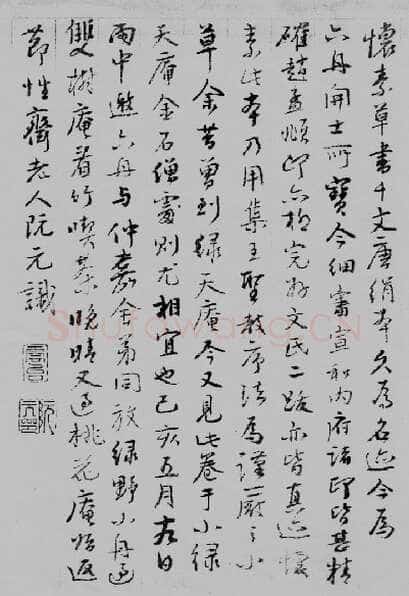 懷素草書千文唐絹本久爲名迹今爲
六舟開士所寶今細審宣和內府諸印皆甚精
確趙孟頫印亦完好文氏二跋亦皆真迹懷
素此本乃用集王聖教序法爲謹嚴之小
草余昔曾到綠天庵今又見此卷于小綠
天庵金石僧處則尤相宜也己亥五月日
雨中邀六舟与仲嘉余弟同放綠野小舟過
雙樹庵看竹喫茶晚晴又過桃花庵始返
節性齋老人阮元識
Shufawang.CN